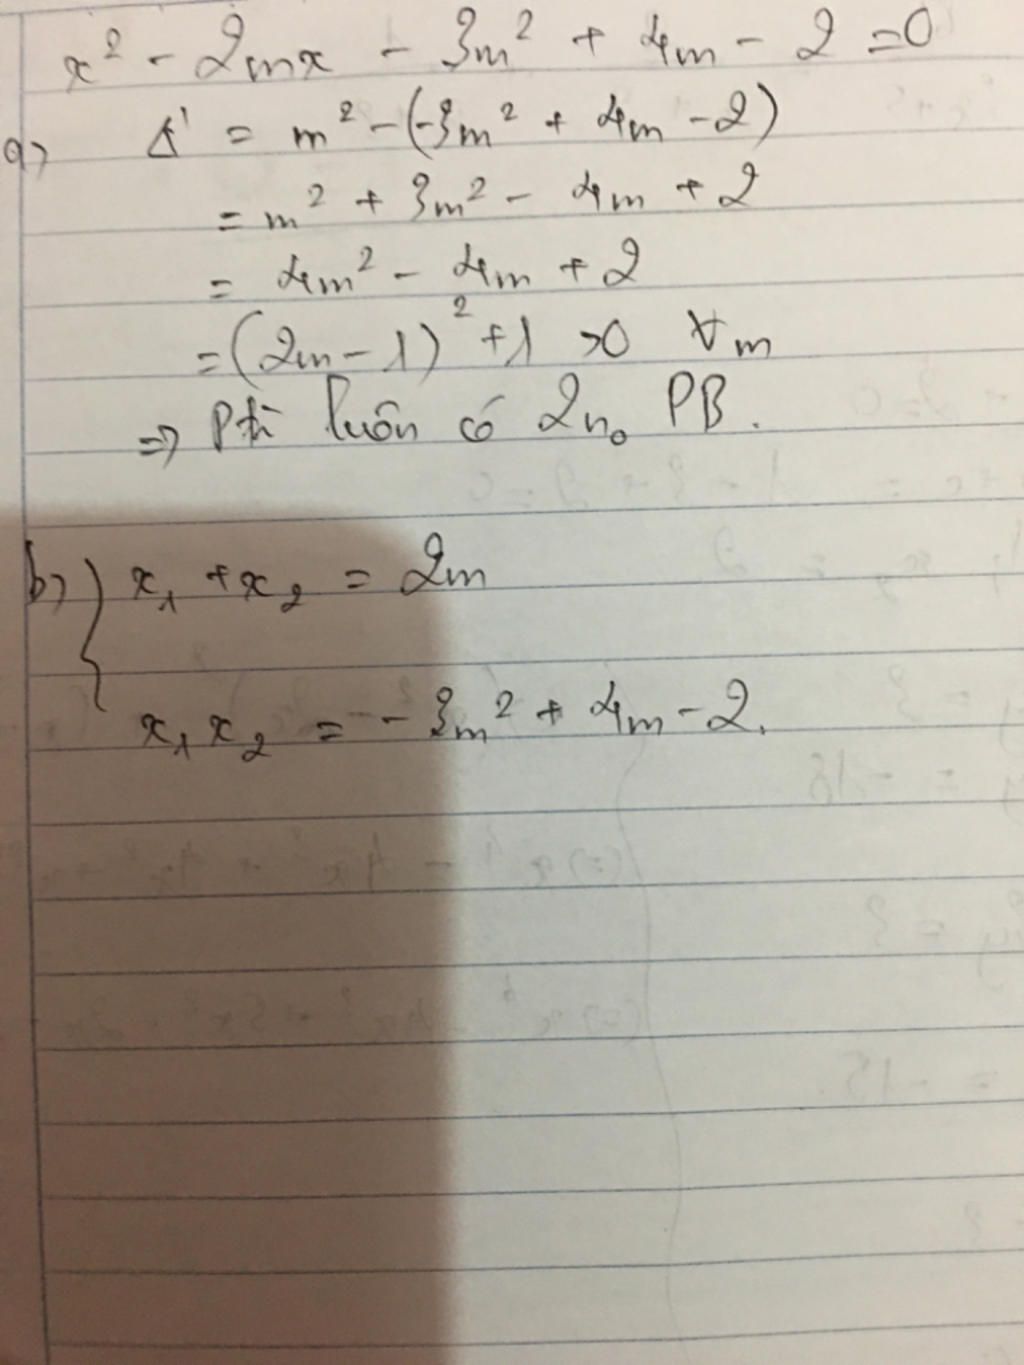 x² - 2mx - 3m² + 4m - 2 = 0
a) Δ' = m² - (-3m² + 4m - 2)
= m² + 3m² - 4m + 2
= 4m² - 4m + 2
= (2m - 1)² + 1 > 0 ∀m
=> Ptr luôn có 2n₀ PB.
b) { x₁ + x₂ = 2m
x₁x₂ = -3m² + 4m - 2.